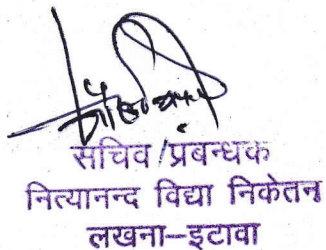 सचिव/प्रबन्धक
नित्यानन्द विद्या निकेतन
लखना–इटावा